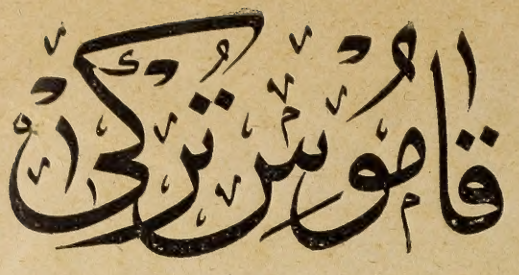 قاموس تركى